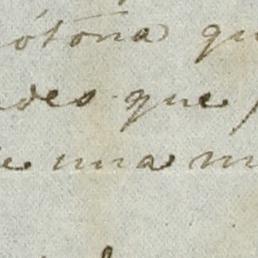 ótona qu
des que
e una m